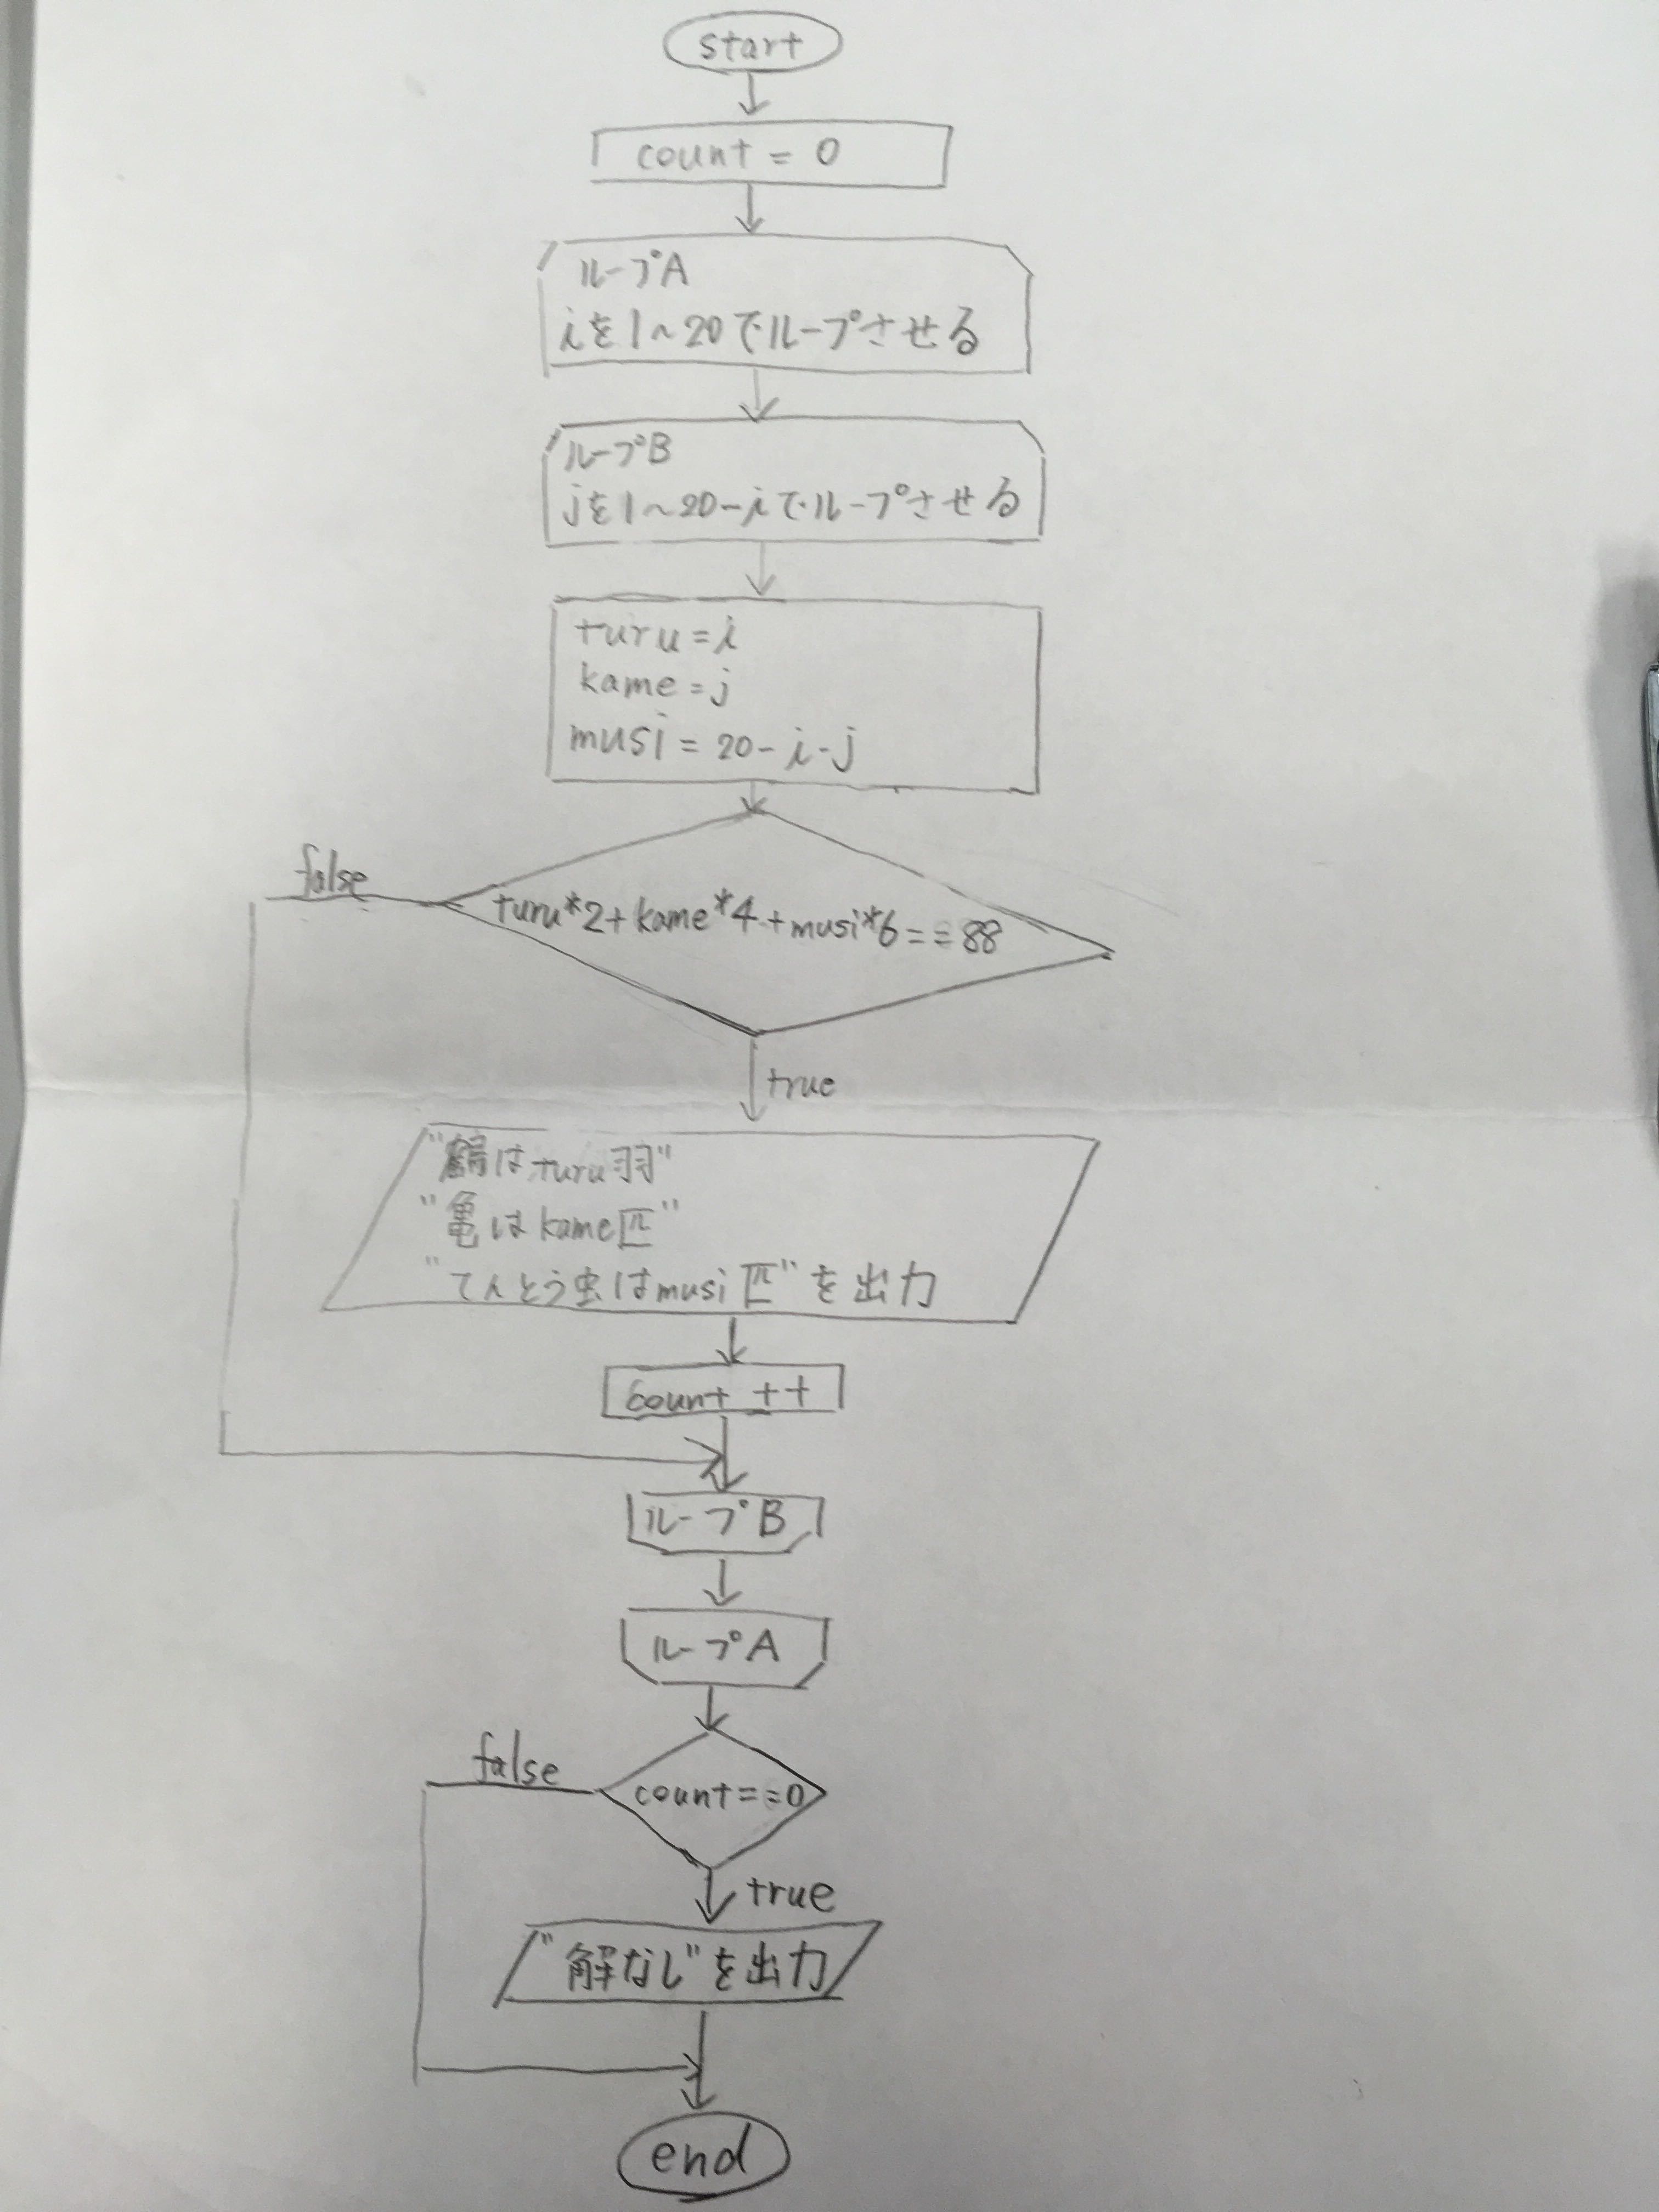 start
count = 0
ループA
iを1~20でループさせる
ループB
jを1~20-iでループさせる
turu=i
kame=j
musi=20-i-j
false
turu*2+kame*4+musi*6==88
true
"鶴はturu羽"
"亀はkame匹"
"てんとう虫はmusi匹"を出力
count ++
ループB
ループA
false
count==0
true
"解なし"を出力
end